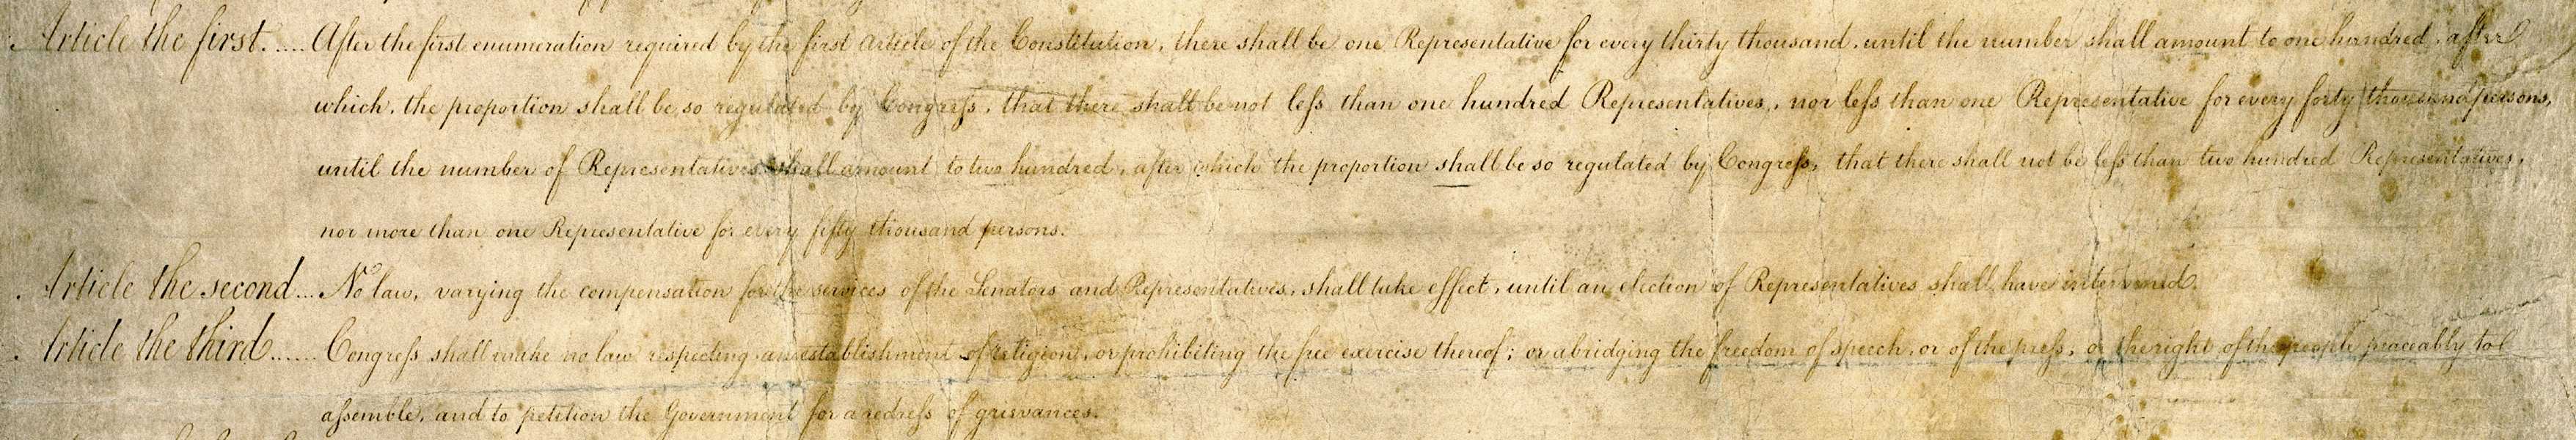 Article the first..... After the first enumeration required by the first article of the Constitution, there shall be one Representative for every thirty thousand, until the number shall amount to one hundred, after
which, the proportion shall be so regulated by Congreſs, that there shall be not leſs than one hundred Representatives, nor leſs than one Representative for every forty thousand persons,
until the number of Representatives shall amount to two hundred, after which the proportion shall be so regulated by Congreſs, that there shall not be leſs than two hundred Representatives,
nor more than one Representative for every fifty thousand persons.
Article the second... No law, varying the compensation for the services of the Senators and Representatives, shall take effect, until an election of Representatives shall have intervened.
Article the third...... Congreſs shall make no law respecting an establishment of religion, or prohibiting the free exercise thereof; or abridging the freedom of speech, or of the preſs, or the right of the people peaceably to
aſsemble, and to petition the Government for a redreſs of grievances.